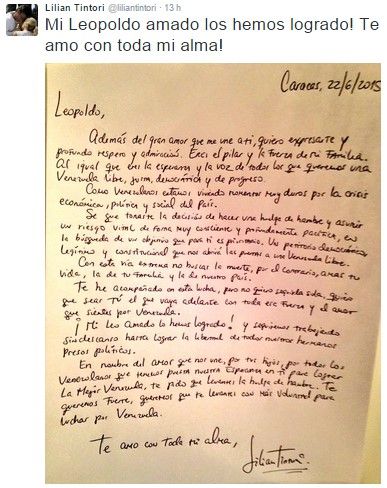 Lilian Tintori @liliantintori · 13 h
Mi Leopoldo amado los hemos logrado! Te
amo con toda mi alma!
Caracas, 22/6/2015
Leopoldo,
Además del gran amor que me une a ti, quiero expresarte y
profundo respeto y admiración. Eres el pilar y la fuerza de mi familia.
Al igual que eres la esperanza y la voz de todos los que queremos una
Venezuela libre, justa, democrática y de progreso.
Como Venezolanos estamos viviendo momentos muy duros por la crisis
económica, política y social del país.
Se que tomaste la decisión de hacer una huelga de hambre y asumir
un riesgo vital de forma muy consciente y profundamente pacífica, en
la búsqueda de un objetivo que para ti es prioritario. Un
legítimo y constitucional que nos abrirá las puertas a una Venezuela libre.
Con esta vía extrema no buscas la muerte, por el contrario, amas tu
vida, la de tu Familia y la de nuestro país.
Te he acompañado en esta lucha, pero no quiero seguirla sola, quiero
que seas Tú el que vaya adelante con toda esa fuerza y el amor
que sientes por Venezuela.
¡Mi Leo Amado lo hemos logrado! y seguiremos trabajando
sin descanso hasta lograr la libertad de todos nuestros hermanos
presos políticos.
En nombre del amor que nos une, por tus hijos, por todos los
Venezolanos que tenemos puesta nuestra Esperanza en ti para lograr
La Mejor Venezuela, te pido que levantes la huelga de hambre. Te
queremos fuerte, queremos que te levantes con más voluntad para
luchar por Venezuela.
Te amo con toda mi alma,
Lilian Tintori